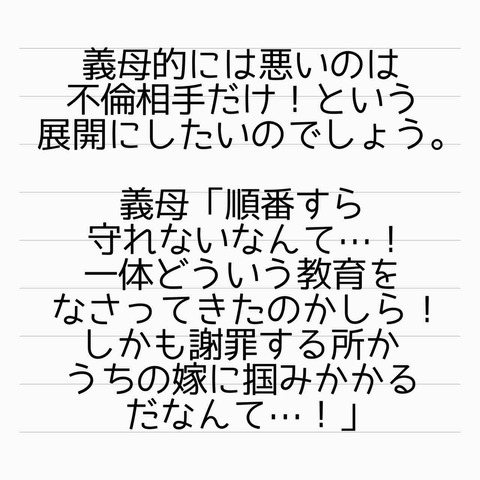 義母的には悪いのは
不倫相手だけ！という
展開にしたいのでしょう。
義母「順番すら
守れないなんて…！
一体どういう教育を
なさってきたのかしら！
しかも謝罪する所か
うちの嫁に掴みかかる
だなんて…！」